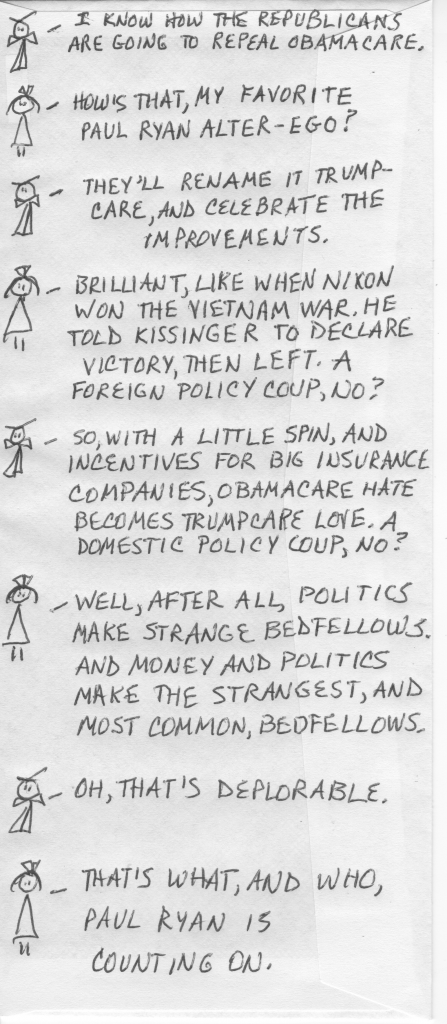 I KNOW HOW THE REPUBLICANS
ARE GOING TO REPEAL OBAMACARE.
HOW'S THAT, MY FAVORITE
PAUL RYAN ALTER-EGO?
THEY'LL RENAME IT TRUMP-
CARE, AND CELEBRATE THE
IMPROVEMENTS.
BRILLIANT, LIKE WHEN NIXON
WON THE VIETNAM WAR. HE
TOLD KISSINGER TO DECLARE
VICTORY, THEN LEFT. A
FOREIGN POLICY COUP, NO?
SO, WITH A LITTLE SPIN, AND
INCENTIVES FOR BIG INSURANCE
COMPANIES, OBAMACARE HATE
BECOMES TRUMPCARE LOVE. A
DOMESTIC POLICY COUP, NO?
WELL, AFTER ALL, POLITICS
MAKE STRANGE BEDFELLOWS.
AND MONEY AND POLITICS
MAKE THE STRANGEST, AND
MOST COMMON, BEDFELLOWS.
OH, THAT'S DEPLORABLE.
THAT'S WHAT, AND WHO,
PAUL RYAN IS
COUNTING ON.